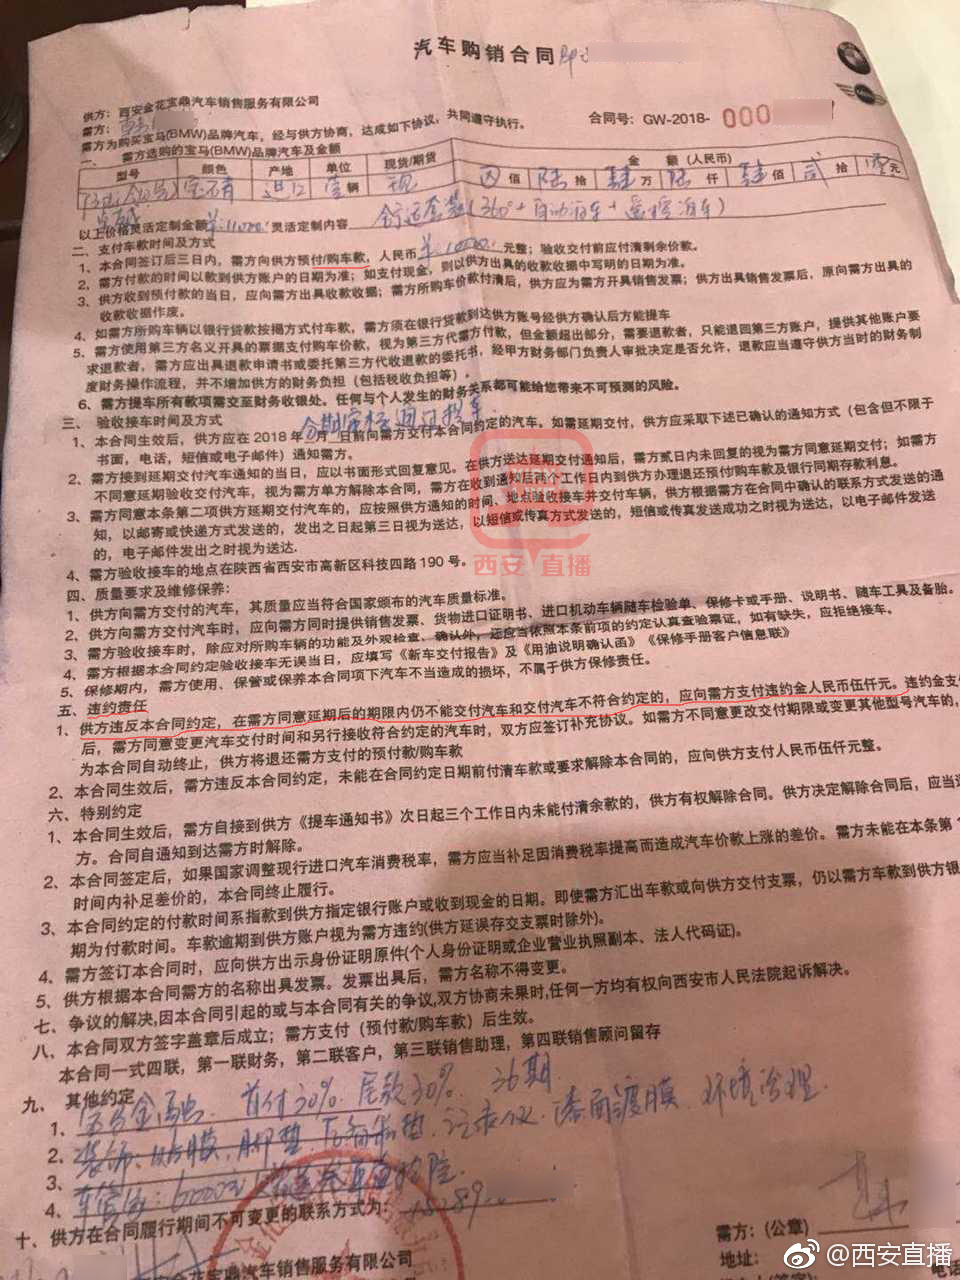 汽车购销合同
供方：西安金花宝鼎汽车销售服务有限公司
需方：
合同号：GW-2018- 000
需方为购买宝马(BMW)品牌汽车，经与供方协商，达成如下协议，共同遵守执行。
一、 需方选购的宝马(BMW)品牌汽车及金额
型号 颜色 产地 单位 现货/期货 金 额（人民币）
宝石青 进口 壹 辆 现 佰 陆 拾 肆 万 陆 仟 肆 佰 贰 拾 零 元
以上价格灵活定制金额 灵活定制内容 舒适套装(360°+自动泊车+遥控泊车)
二、支付车款时间及方式
1、本合同签订后三日内，需方向供方预付/购车款，人民币 元整；验收交付前应付清剩余价款。
2、需方付款的时间以款到供方账户的日期为准；如支付现金，则以供方出具的收款收据中写明的日期为准。
3、供方收到预付款的当日，应向需方出具收款收据；需方所购车价款付清后，供方应为需方开具销售发票；供方出具销售发票后，原向需方出具的
收款收据作废。
4、如需方所购车辆以银行贷款按揭方式付车款，需方须在银行贷款到达供方账号经供方确认后方能提车
5、需方使用第三方名义开具的票据支付购车价款，视为第三方代需方付款，但金额超出部分，需要退款者，只能退回第三方账户，提供其他账户要
求退款者，需方应出具退款申请书或委托第三方代收退款的委托书，经甲方财务部门负责人审批决定是否允许，退款应当遵守供方当时的财务制
度财务操作流程，并不增加供方的财务负担（包括税收负担等）。
6、需方提车所有款项需交至财务收银处。任何与个人发生的财务关系都可能给您带来不可预测的风险。
三、验收接车时间及方式
1、本合同生效后，供方应在 2018 年 日前向需方交付本合同约定的汽车。如需延期交付，供方应采取下述已确认的通知方式（包含但不限于
书面，电话，短信或电子邮件）通知需方。
2、需方接到延期交付汽车通知的当日，应以书面形式回复意见。在供方送达延期交付通知后，需方贰日内未回复的视为需方同意延期交付；如需方
不同意延期验收交付汽车，视为需方单方解除本合同，需方在收到通知后两个工作日内到供方办理退还预付/购车款及银行同期存款利息。
3、需方同意本条第二项供方延期交付汽车的，应按照供方通知的时间、地点验收接车并交付车辆，供方根据需方在合同中确认的联系方式发送的通
知，以邮寄或快递方式发送的，发出之日起第三日视为送达，以短信或传真方式发送的，短信或传真发送成功之时视为送达，以电子邮件发送
的，电子邮件发出之时视为送达.
4、需方验收接车的地点在陕西省西安市高新区科技四路 190 号。
西安 直播
四、质量要求及维修保养：
1、供方向需方交付的汽车，其质量应当符合国家颁布的汽车质量标准。
2、供方向需方交付汽车时，应向需方同时提供销售发票、货物进口证明书、进口机动车辆随车检验单、保修卡或手册、说明书、随车工具及备胎。
3、需方验收接车时，除应对所购车辆的功能及外观检查、确认外，还应当依照本条前项的约定认真查验票证，如有缺失，应拒绝接车。
4、需方根据本合同约定验收接车无误当日，应填写《新车交付报告》及《用油说明确认函》《保修手册客户信息联》
5、保修期内，需方使用、保管或保养本合同项下汽车不当造成的损坏，不属于供方保修责任。
五、违约责任
1、供方违反本合同约定，在需方同意延期后的期限内仍不能交付汽车和交付汽车不符合约定的，应向需方支付违约金人民币伍仟元。违约金支付
后，需方同意变更汽车交付时间和另行接收符合约定的汽车时，双方应签订补充协议。如需方不同意更改交付期限或变更其他型号汽车的，
为本合同自动终止，供方将退还需方支付的预付款/购车款
2、本合同生效后，需方违反本合同约定，未能在合同约定日期前付清车款或要求解除本合同的，应向供方支付人民币伍仟元整。
六、特别约定
1、本合同生效后，需方自接到供方《提车通知书》次日起三个工作日内未能付清余款的，供方有权解除合同。供方决定解除合同后，应当
方。合同自通知到达需方时解除。
2、本合同签定后，如果国家调整现行进口汽车消费税率，需方应当补足因消费税率提高而造成汽车价款上涨的差价。需方未能在本条第
时间内补足差价的，本合同终止履行。
3、本合同约定的付款时间系指款到供方指定银行账户或收到现金的日期。即使需方汇出车款或向供方交付支票，仍以需方车款到供方银
期为付款时间。车款逾期到供方账户视为需方违约(供方延误存交支票时除外)。
4、需方签订本合同时，应向供方出示身份证明原件(个人身份证明或企业营业执照副本、法人代码证)。
5、供方根据本合同需方的名称出具发票。发票出具后，需方名称不得变更。
七、争议的解决,因本合同引起的或与本合同有关的争议,双方协商未果时,任何一方均有权向西安市人民法院起诉解决。
八、本合同双方签字盖章后成立；需方支付（预付款/购车款）后生效。
本合同一式四联，第一联财务，第二联客户，第三联销售助理，第四联销售顾问留存
九、 其他约定
1、 金融 首付30% 尾款30% 36期
2、装饰: 贴膜、脚垫 记录仪、漆面镀膜、环境治理
3、
4、
十、供方在合同履行期间不可变更的联系方式为： 18289
需方：(公章)
西安金花宝鼎汽车销售服务有限公司
地址：
电话
@西安直播